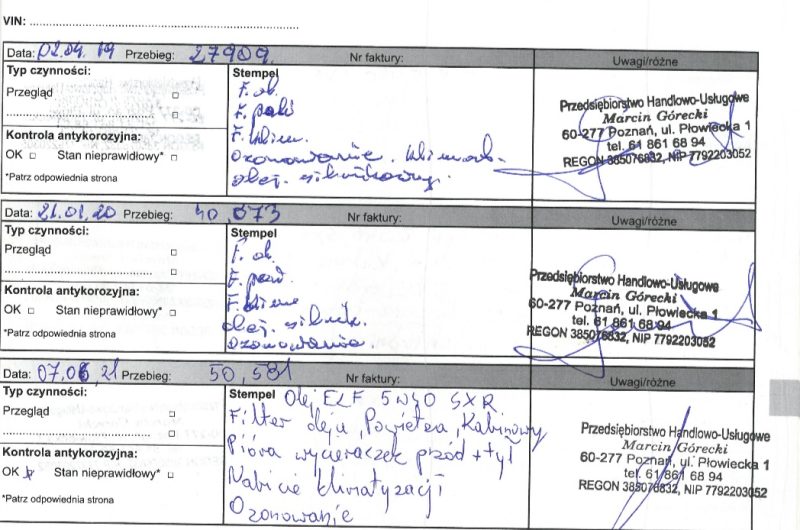 VIN:
Data: 02.04.19 Przebieg: 27909. Nr faktury: Uwagi/różne
Typ czynności:
Przegląd
Kontrola antykorozyjna:
OK Stan nieprawidłowy*
*Patrz odpowiednia strona
Stempel
F. ol.
F.
F. klim.
ozonowanie. klimat.
olej. silnikowy.
Przedsiębiorstwo Handlowo-Usługowe
Marcin Górecki
60-277 Poznań, ul. Płowiecka 1
tel. 61 861 68 94
REGON 385076832, NIP 7792203052
Data: 21.01.20 Przebieg: 40,073 Nr faktury: Uwagi/różne
Typ czynności:
Przegląd
Kontrola antykorozyjna:
OK Stan nieprawidłowy*
*Patrz odpowiednia strona
Stempel
F. ol.
F.
F. klim
olej. silnik.
ozonowanie.
Przedsiębiorstwo Handlowo-Usługowe
Marcin Górecki
60-277 Poznań, ul. Płowiecka 1
tel. 61 861 68 94
REGON 385076832, NIP 7792203052
Data: 07,06,21 Przebieg: 50,581 Nr faktury: Uwagi/różne
Typ czynności:
Przegląd
Kontrola antykorozyjna:
OK Stan nieprawidłowy*
*Patrz odpowiednia strona
Stempel Olej ELF 5W40 SXR
Filter oleju, Powietrza, Kabinowy
Pióra wycieraczek przód + tył
Nabicie klimatyzacji
Ozonowanie
Przedsiębiorstwo Handlowo-Usługowe
Marcin Górecki
60-277 Poznań, ul. Płowiecka 1
tel. 61 861 68 94
REGON 385076832, NIP 7792203052